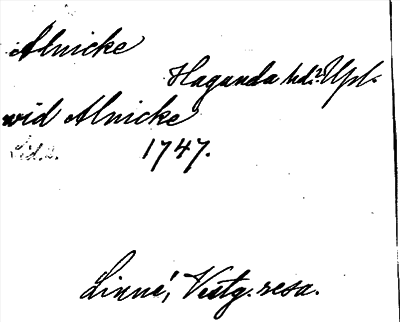 Alnicke
Haganda hd? Upl.
wid Alnicke
Lid. 2.
1747.
Linné, Vestg. resa.